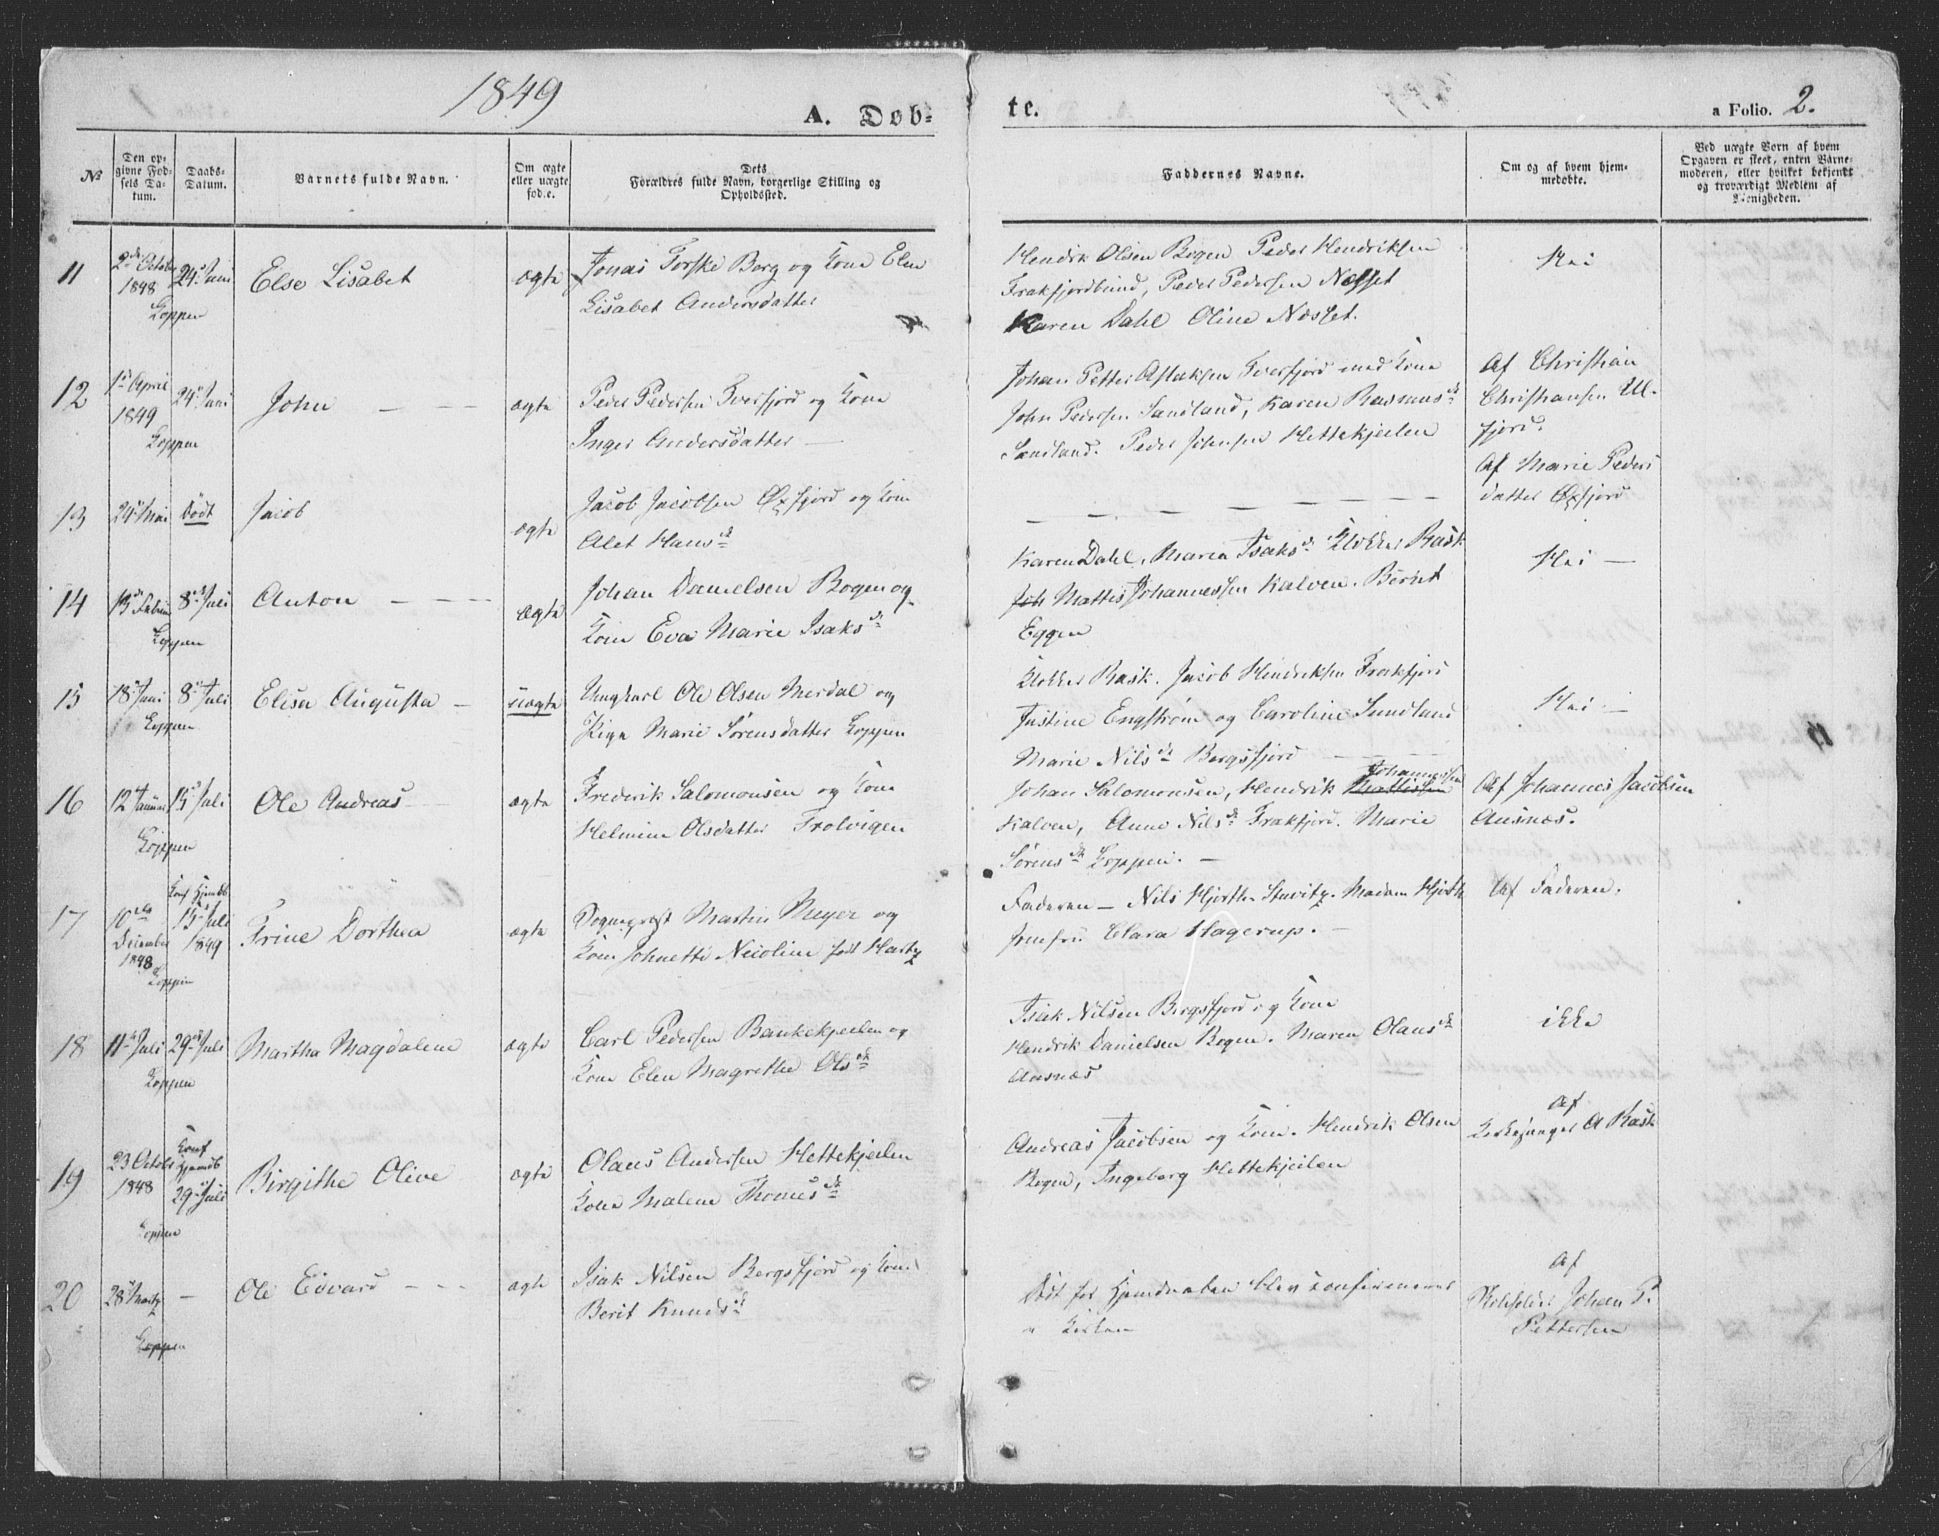 1849
A. Døb-
te.
a Folio. 2.
№
Den op-
givne Fød-
sels Da-
tum.
Daabs-
Datum.
Barnets fulde Navn.
Om ægte
eller uægte
fød.e.
Dets
Forældres fulde Navn, borgerlige Stilling og
Opholdssted.
Faddernes Navne.
Om og af hvem hjem-
medøbte.
Ved uægte Børn af hvem
Opgaven er skeet, enten Barne-
moderen, eller hvilket bekjendt
og troværdigt Medlem af
Menigheden.
11
2den October
1848
Loppen
24 Juni
Else Lisabet
ægte
Jonas Torske Berg og Kone Elen
Lisabet Andersdatter
Hendrik Olsen Bogen Peder Hendriksen
Frakfjordbund, Peder Pedersen Næsset
Karen Dahl Oline Næsset.
Nei
12
1st April
1849
Loppen
24 Juni
John — — —
ægte
Peder Pedersen Tverfjord og Kone
Inger Andersdatter
Johan Petter Aslaksen Tverfjord med Kone
John Pedersen Sandland, Karen Rasmusd
Sandland. Peder Johnsen Hettekjeilen
Af Christian
Christiansen Ul-
fjord.
13
24 Mai
Dødt
Jacob
ægte
Jacob Jacobsen Øxfjord og Kone
Alet Hansd
— — — — — — —
Af Marie Peders
datter Øxfjord
14
13 Febru
Loppen
8de Juli
Anton — — —
ægte
Johan Danielsen Bogen og
Kone Eva Marie Isaksd
Karen Dahl, Maren Isaksd Klokker Rask
Joh Mattis Johannessen Kalven. Bernt
Eggen
Nei —
15
18 Juni
Loppen
8de Juli
Elisa Augusta —
uægte
Ungkarl Ole Olsen Merdal og
Pige Marie Sørensdatter Loppen
Klokker Rask. Jacob Hendriksen Frakfjord
Justine Engstrøm og Caroline Sandland
Marie Nilsd Bergsfjord — — —
Nei —
16
12 Januar
Loppen
15 Juli
Ole Andreas
ægte
Frederik Salomonsen og Kone
Helmine Olsdatter Trolvigen
Johan Salomonsen, Hendrik Mattissen Johannessen
Kalven, Anne Nilsd Frakfjord. Marie
Sørensd Loppen. —
Af Johannes Jacobsen
Ausnæs.
17
10de
December
1848
Loppen
Conf Hjemdb
15 Juli
1849
Trine Dorthea
ægte
Sogneprest Martin Meyer og
Kone Johnette Nicoline født Hartz
Faderen — Nils Hjorth. Stuvitz. Madam Hjorth
Jomfru Clara Hagerup. —
Af Faderen.
18
11 Juli
Loppen
29 Juli
Martha Magdalene
ægte
Carl Pedersen Bankekjeilen og
Kone Elen Magrethe Olsd
Isak Nilsen Bergsfjord og Kone
Hendrik Danielsen Bogen. Maren Olausd
Ausnæs
ikke
19
23 Octobr
1848
Loppen
Conf
Hjemdb
29 Juli
Birgithe Olive
ægte
Olaus Andersen Hettekjeilen
Kone Malene Thomesd
Andreas Jacobsen og Kone. Hendrik Olsen
Bogen, Ingeborg Hettekjeilen
Af
Kirkesanger A Rask
20
28 Martz
Loppen
—
Ole Edvard — — —
ægte
Isak Nilsen Bergsfjord og Kone
Berit Knudsd
Død før Hjemdaaben blev confirmeret
i Kirken
Af
Johan P.
Pettersen